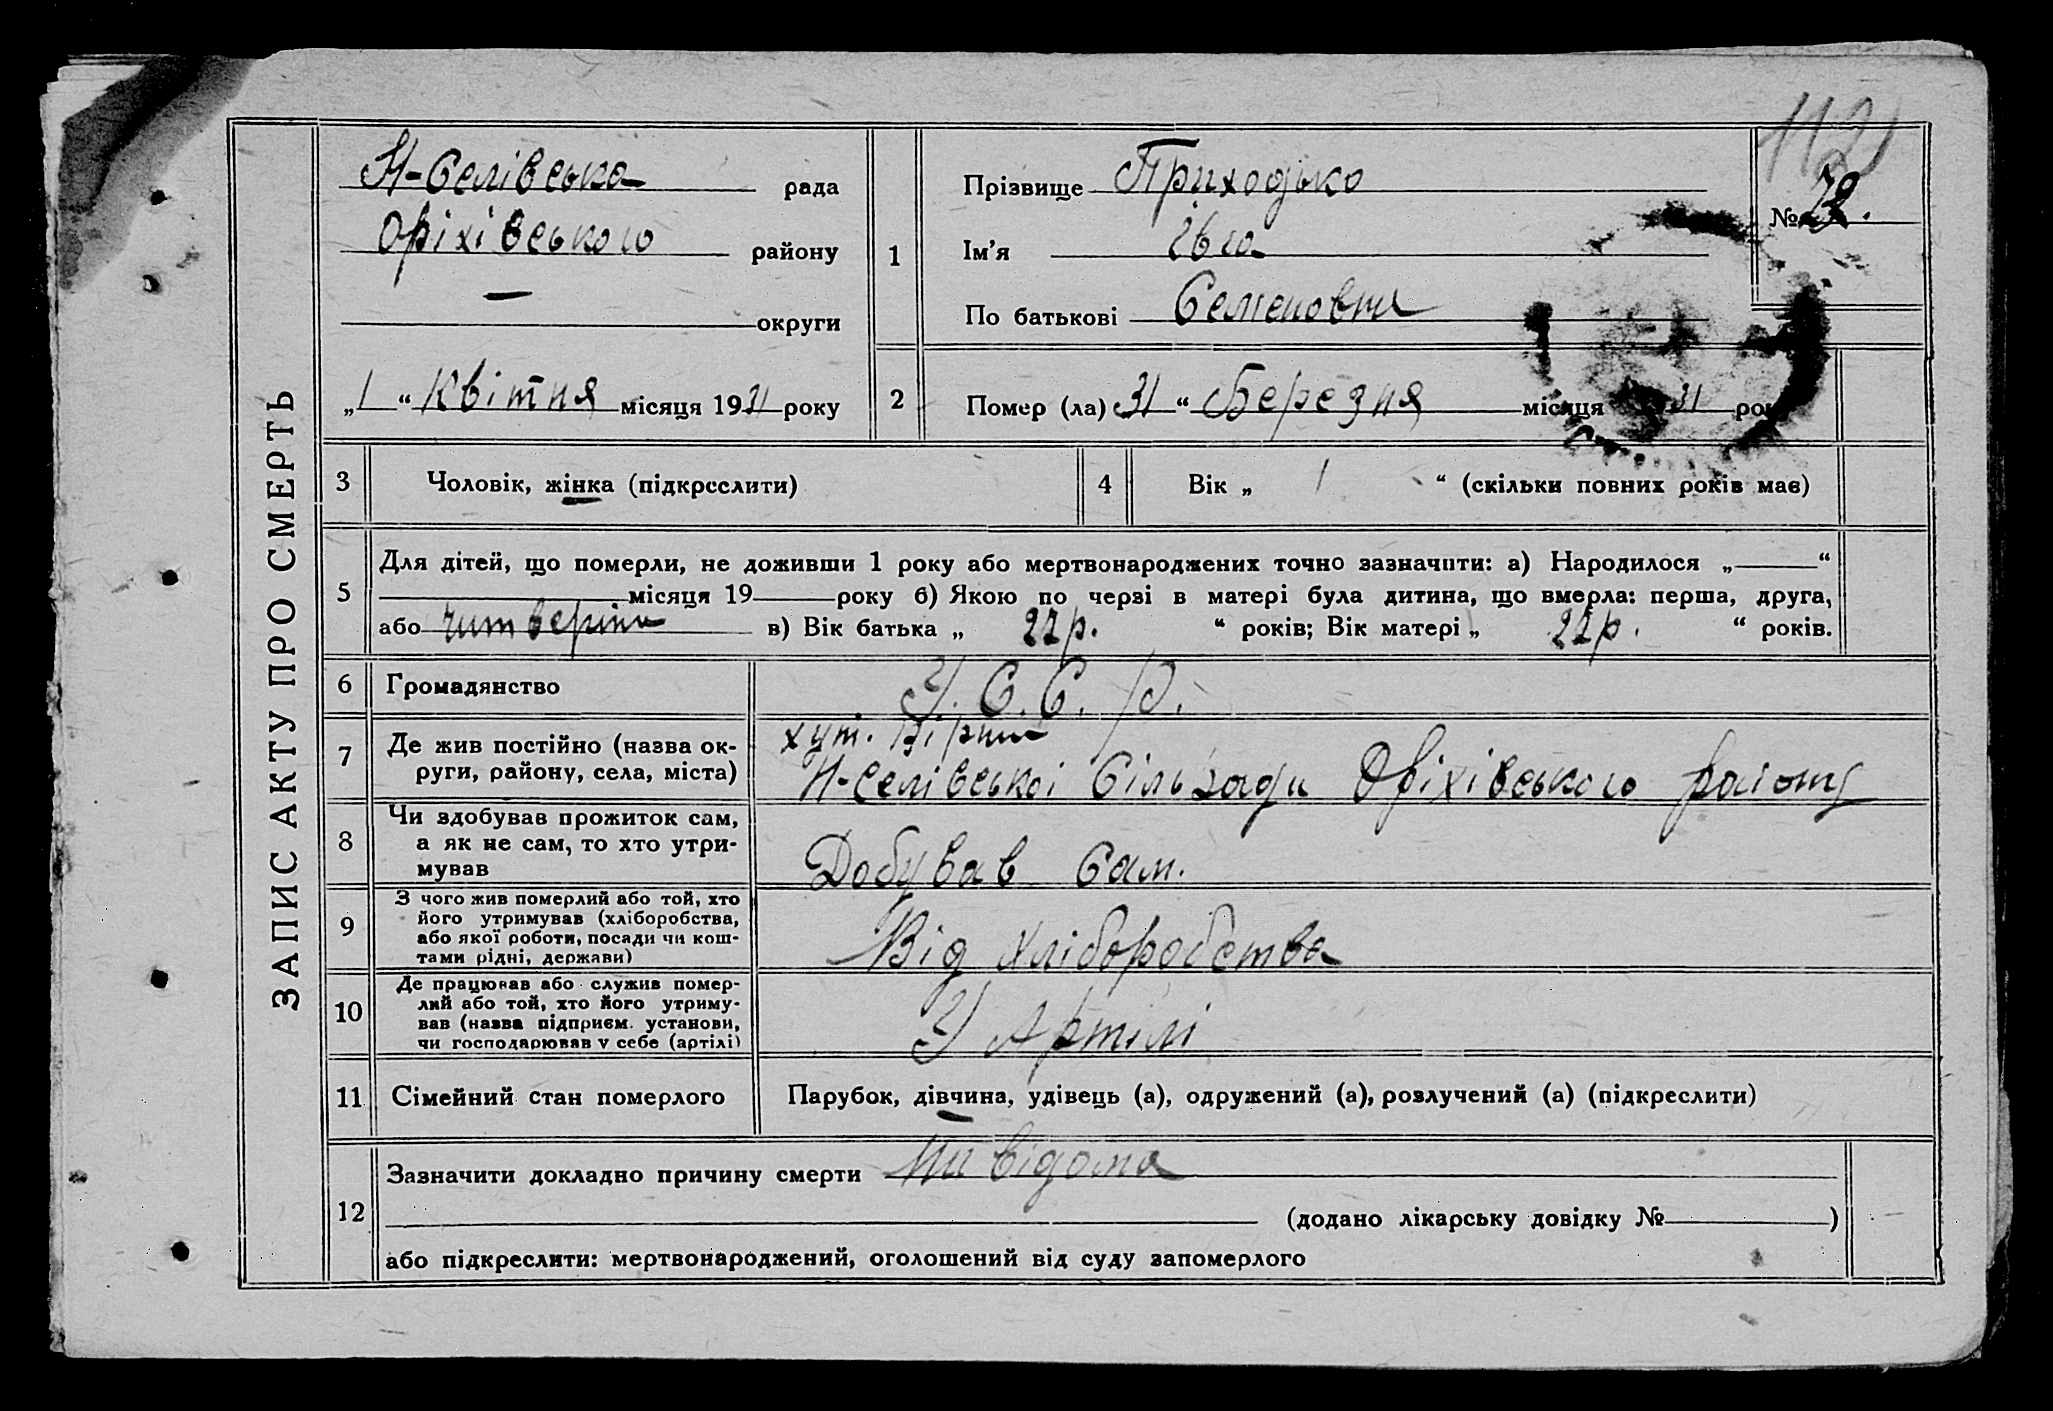 112
ЗАПИС АКТУ ПРО СМЕРТЬ
Н-Селівська рада
Оріхівського району
— округи
„1“ Квітня місяця 1931 року
1
Прізвище Приходько
Ім'я
По батькові Семеновни
№
2
Помер (ла) 31 “ Березня місяця 31 року
3
Чоловік, жінка (підкреслити)
4
Вік „ 1 “ (скільки повних років має)
5
Для дітей, що померли, не доживши 1 року або мертвонароджених точно зазначити: а) Народилося „ “
місяця 19 року б) Якою по черзі в матері була дитина, що вмерла: перша, друга,
або в) Вік батька „ 22р. “ років; Вік матері „ 22р. “ років.
6
Громадянство
У. С. С. Р.
7
Де жив постійно (назва ок-
руги, району, села, міста)
хут.
Н-Селівської Сільради Оріхівського району
8
Чи здобував прожиток сам,
а як не сам, то хто утри-
мував
Добував Сам.
9
З чого жив померлий або той, хто
його утримував (хліборобства,
або якої роботи, посади чи кош-
тами рідні, держави)
Від хліборобства
10
Де працював або служив помер-
лий або той, хто його утриму-
вав (назва підприєм. установи,
чи господарював у себе (артілі)
У Артілі
11
Сімейний стан померлого
Парубок, дівчина, удівець (а), одружений (а), розлучений (а) (підкреслити)
12
Зазначити докладно причину смерти Ни відома
(додано лікарську довідку № )
або підкреслити: мертвонароджений, оголошений від суду запомерлого